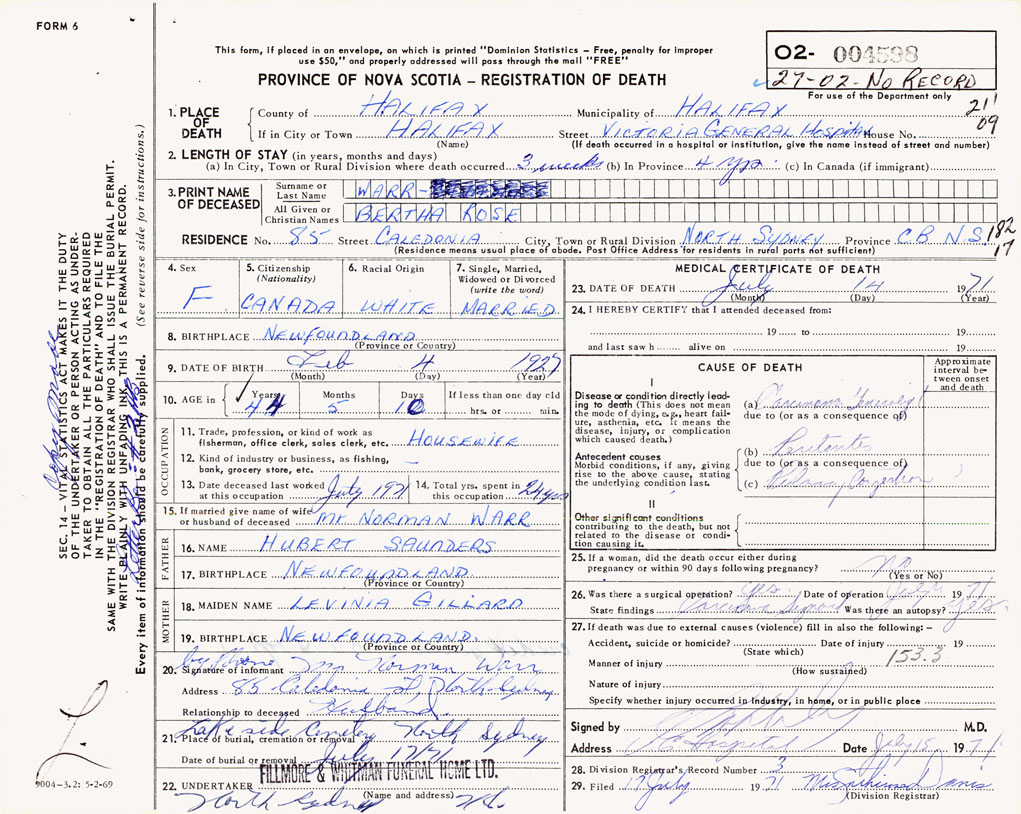 FORM 6
This form, if placed in an envelope, on which is printed "Dominion Statistics – Free, penalty for improper
use $50," and properly addressed will pass through the mail "FREE"
PROVINCE OF NOVA SCOTIA – REGISTRATION OF DEATH
02- 004598
27-02-NO RECORD
For use of the Department only
21
09
1. PLACE OF DEATH
County of HALIFAX Municipality of HALIFAX
If in City or Town HALIFAX Street VICTORIA GENERAL HOSPITAL House No.
(Name) (If death occurred in a hospital or institution, give the name instead of street and number)
2. LENGTH OF STAY (in years, months and days)
(a) In City, Town or Rural Division where death occurred 3 weeks (b) In Province 4 yrs. (c) In Canada (if immigrant)
3. PRINT NAME OF DECEASED
Surname or Last Name WARR-
All Given or Christian Names BERTHA ROSE
RESIDENCE No. 85 Street CALEDONIA City, Town or Rural Division NORTH SYDNEY Province C B N.S. 182
17
(Residence means usual place of abode. Post Office Address for residents in rural parts not sufficient)
4. Sex F
5. Citizenship (Nationality) CANADA
6. Racial Origin WHITE
7. Single, Married, Widowed or Divorced (write the word) MARRIED
8. BIRTHPLACE NEWFOUNDLAND
(Province or Country)
9. DATE OF BIRTH Feb 4 1927
(Month) (Day) (Year)
10. AGE in Years 44 Months 5 Days 10 If less than one day old
hrs. or min.
OCCUPATION
11. Trade, profession, or kind of work as
fisherman, office clerk, sales clerk, etc. HOUSEWIFE
12. Kind of industry or business, as fishing,
bank, grocery store, etc. –
13. Date deceased last worked at this occupation July 1971
14. Total yrs. spent in this occupation 24 yrs
15. If married give name of wife
or husband of deceased Mr NORMAN WARR
FATHER
16. NAME HUBERT SAUNDERS
17. BIRTHPLACE NEWFOUNDLAND
(Province or Country)
MOTHER
18. MAIDEN NAME LEVINIA GILLARD
19. BIRTHPLACE NEWFOUNDLAND.
(Province or Country)
by Phone Mr Norman Warr
20. Signature of informant
Address 85 Caledonia St, North Sydney
Relationship to deceased Husband
Lakeside Cemetery North Sydney
21. Place of burial, cremation or removal
Date of burial or removal July 17/71
FILLMORE & WHITMAN FUNERAL HOME LTD.
22. UNDERTAKER
(Name and address)
North Sydney N.S.
MEDICAL CERTIFICATE OF DEATH
23. DATE OF DEATH July 14 1971
(Month) (Day) (Year)
24. I HEREBY CERTIFY that I attended deceased from:
19 to 19
and last saw h alive on 19
CAUSE OF DEATH
Approximate interval between onset and death
I
Disease or condition directly leading
to death (This does not mean
the mode of dying, e.g., heart failure,
asthenia, etc. It means the
disease, injury, or complication
which caused death.)
(a) Carcinoma
due to (or as a consequence of)
Antecedent causes
Morbid conditions, if any, giving
rise to the above cause, stating
the underlying condition last.
(b) Peritonitis
due to (or as a consequence of)
(c) Pulmonary Congestion
II
Other significant conditions
contributing to the death, but not
related to the disease or condition
causing it.
25. If a woman, did the death occur either during
pregnancy or within 90 days following pregnancy? No
(Yes or No)
26. Was there a surgical operation? Yes Date of operation July 1971
State findings Carcinoma Sigmoid Was there an autopsy? Yes.
27. If death was due to external causes (violence) fill in also the following: –
Accident, suicide or homicide? Date of injury 19
(State which)
153.3
Manner of injury
(How sustained)
Nature of injury
Specify whether injury occurred in industry, in home, or in public place
Signed by M.D.
Address Hospital Date July 15 1971
28. Division Registrar's Record Number 3
29. Filed 17 July 1971 Davis
(Division Registrar)
SEC. 14 – VITAL STATISTICS ACT MAKES IT THE DUTY
OF THE UNDERTAKER OR PERSON ACTING AS UNDERTAKER
TO OBTAIN ALL THE PARTICULARS REQUIRED
IN THE "REGISTRATION OF DEATH" AND TO FILE THE
SAME WITH THE DIVISION REGISTRAR WHO SHALL ISSUE THE BURIAL PERMIT.
WRITE PLAINLY WITH UNFADING INK. THIS IS A PERMANENT RECORD.
Every item of information should be carefully supplied. (See reverse side for instructions.)
9004-3.2: 5-2-69